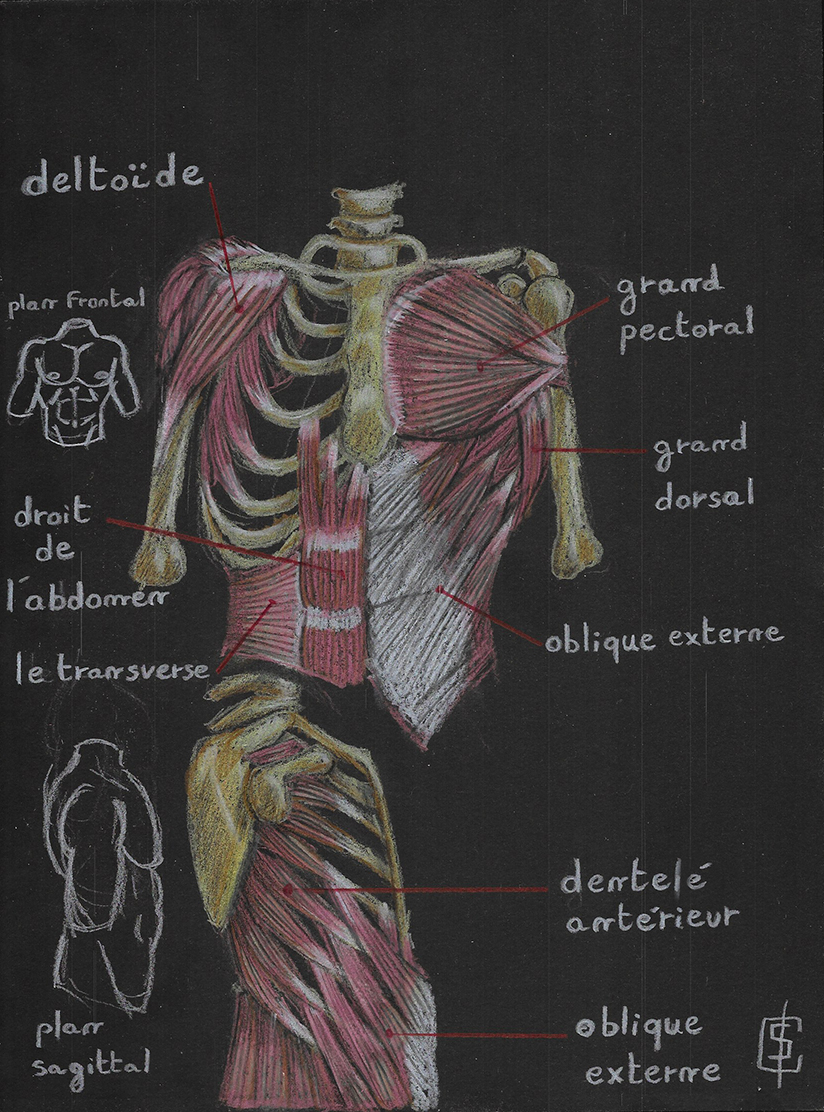 deltoïde
plan frontal
grand
pectoral
grand
dorsal
droit
de
l'abdomen
le transverse
oblique externe
dentelé
antérieur
oblique
externe
plan
sagittal